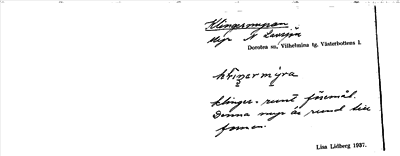 Klingermyran
myr N Lavsjö
Dorotea sn, Vilhelmina tg. Västerbottens l.
klinger- runt föremål.
Denna myr är rund till
formen.
Lisa Lidberg 1937.